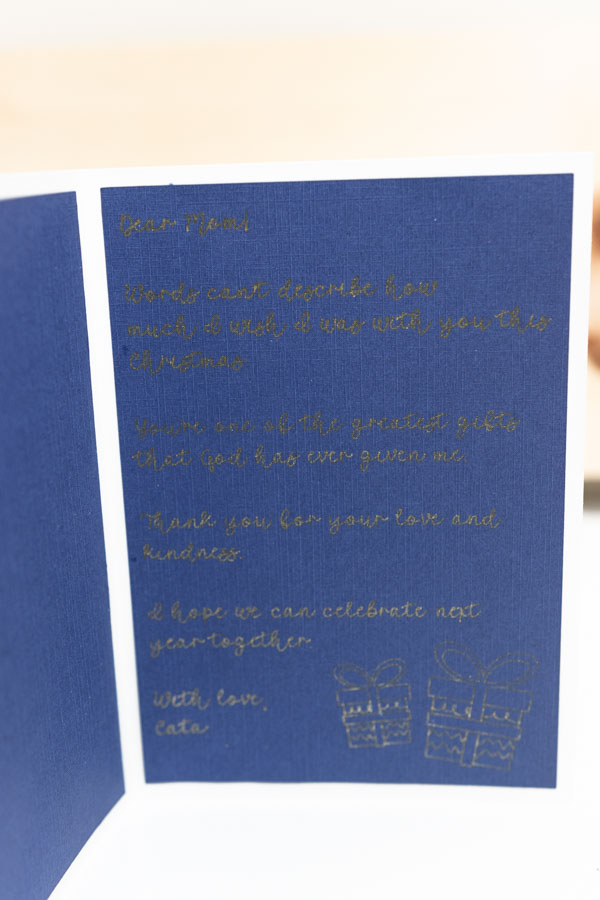 Dear Mom!
Words can't describe how
much I wish I was with you this
Christmas
You're one of the greatest gifts
that God has ever given me.
Thank you for your love and
kindness.
I hope we can celebrate next
year together.
With love,
Cata